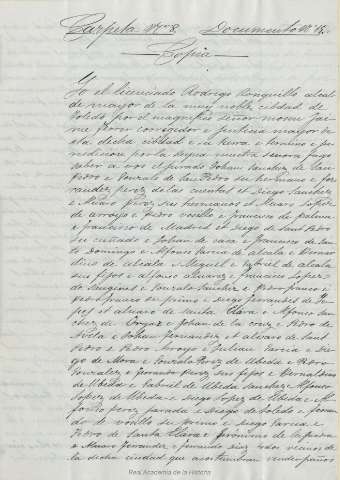 Carpeta Nº 8. Documento Nº 15.
Copia
Yo el licenciado Rodrigo Ronquillo alcal
de mayor de la muy noble cibdad de
Toledo por el magnifico señor mosen Jai
me Ferrer corregidor e justicia mayor de
esta dicha cibdad e su tierra e termino e ju
redicion por la Reyna nuestra señora fago
saber a vos el jurado Johan Sanchez de San
Pedro e Gonzalo de San Pedro su hermano e Fer
nandez perez de las cuentas et Diego Sanchez
e Alvaro perez sus hermanos et Alvaro Lopez
de arroyo e Pedro e francisco de palma
e francisco de Madrid et Diego de Sant Pedro
su cuñado e Johan de e Francisco de San
to Domingo e Alfonso Garcia de alcala e Bernar
dino de alcala e Miguel e gabriel de alcala
sus fijos e alfonso alvarez e Francisco Lopez
de e Gonzalo Sanchez e Pedro franco e
Pedro franco su primo e Diego ferrandes de
et alvaro de Santa Clara e Alfonso San
chez de Orgaz e Johan de la cruz e Pedro de
Avila e Johan Ferrandez e alvaro de Sant
Pedro e Pedro e Julian Garcia e Die
go de Mora e Gonzalo Perez de Ubeda e Pedro
Gonzalez e Fernando perez sus fijos e Bernaldino
de Ubeda e Gabriel de Ubeda Sanchez Alfonso
Lopez de Ubeda e Diego Lopez de Ubeda e Al
fonso perez e Diego de Toledo e fernan
do de su primo e Diego Garcia e
Pedro de Santa Clara e Gerónimo de la
e Alvaro Ferrandez e Fernando Diaz todos vecinos de
la dicha ciudad que acostumbran vender paños
Real Academia de la Historia